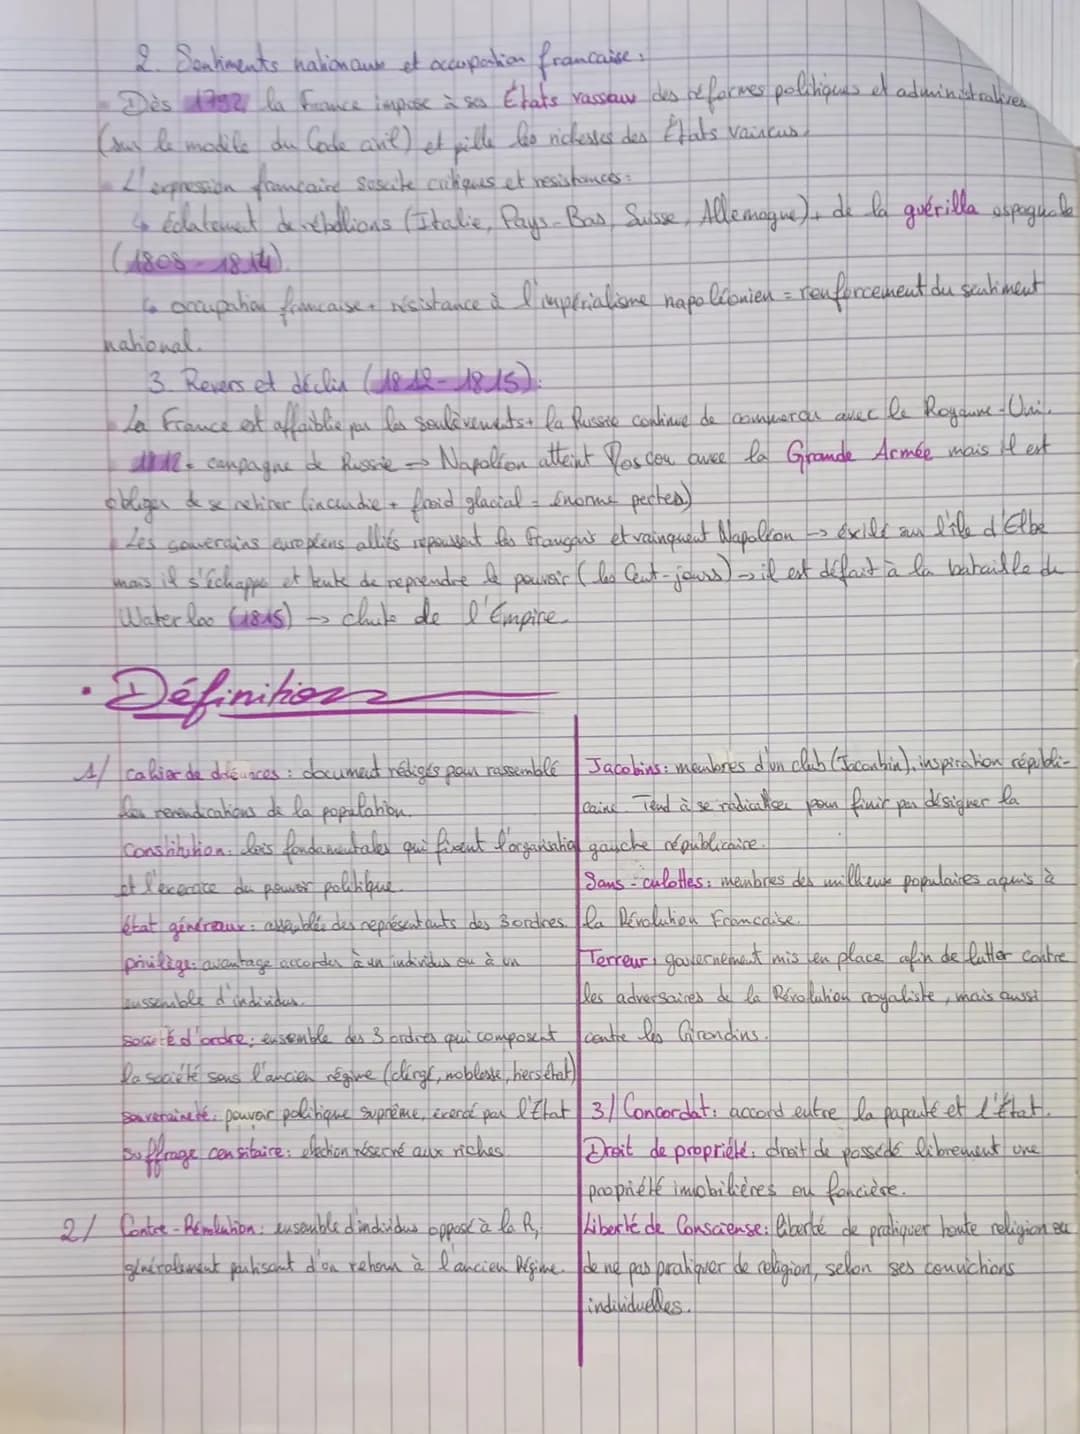 2. Sentiments nationaux et occupation française :
Dès 1792, la France impose à ses États vassaux des réformes politiques et administratives
(sur le modèle du Code civil) et pille les richesses des États vaincus.
L'expression francaire suscite critiques et résistances :
↳ éclatement de rébellions (Italie, Pays-Bas, Suisse, Allemagne) + de la guérilla espagnole
(1808-1814).
↳ occupation francaise + résistance à l'impérialisme napoléonien = renforcement du sentiment
national.
3. Revers et déclin (1812-1815):
La France est affaiblie par les soulèvements + la Russie continue de commercer avec le Royaume-Uni.
1812 = campagne de Russie → Napoléon atteint Moscou avec la Grande Armée mais il est
obliger de se retirer (incendie + froid glacial = énorme pertes)
Les souverains européens alliés repoussent les français et vainquent Napoléon → éxilé sur l'île d'Elbe
mais il s'échappe et tente de reprendre le pouvoir (les Cent-jours) → il est défait à la bataille de
Waterloo (1815) → chute de l'Empire
• Définitions
1/ cahier de doléances : document rédigés pour rassemblé
les revendications de la population.
Constitution : lois fondamentales qui fixent l'organisation
et l'exercice du pouvoir politique.
état généraux : assemblée des représentants des 3 ordres.
privilège : avantage accordés à un individus ou à un
enssemble d'individus.
société d'ordre : ensemble des 3 ordres qui composent
la société sous l'ancien régime (clergé, noblesse, tiers état)
souveraineté : pouvoir politique suprême, exercé par l'État
suffrage censitaire : élection réservé aux riches.
2/ Contre-Révolution : ensemble d'individus opposé à la R,
généralement puhisant d'un retour à l'ancien Régime.
Jacobins : membres d'un club (Jaconbin), inspiration républi-
caine. Tend à se radicaliser pour finir par désigner la
gauche républicaine.
Sans-culottes : membres des milheux populaires aquis à
la Révolution Francaise.
Terreur : gouvernement mis en place afin de lutter contre
les adversaires de la Révolution royaliste, mais aussi
contre les Girondins.
3/ Concordat : accord entre la papauté et l'État.
Droit de propriété : droit de possédé librement une
propriété imobilières ou foncière.
Liberté de Consciense : liberté de pratiquer toute religion ou
de ne pas pratiquer de religion, selon ses convictions
individuelles.